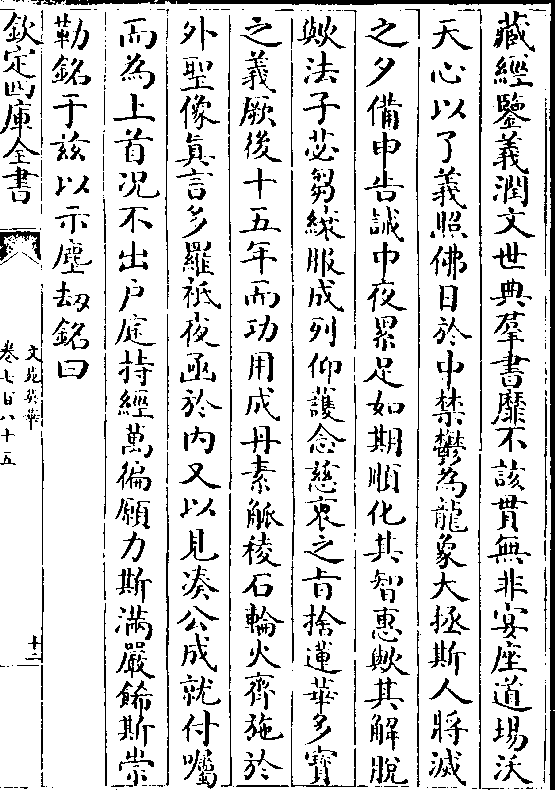 藏經鑒義潤文世典羣書靡不該貫無非宴座道場沃
天心以了義照佛日於中禁鬱為龍象大拯斯人將滅
之夕備申告誡中夜累足如期順化其智惠歟其解脫
歟法子苾芻縗服成列仰護念慈哀之旨捨蓮華多寶
之義厥後十五年而功用成丹素觚稜石輪火齊施於
外聖像眞言多羅祇夜函於内又以見湊公成就付囑
而為上首况不出戶庭持經萬徧願力斯滿嚴餙斯崇
勒銘于兹以示塵刼銘曰
欽定四庫全書
文苑英華
卷七百八十五
十二